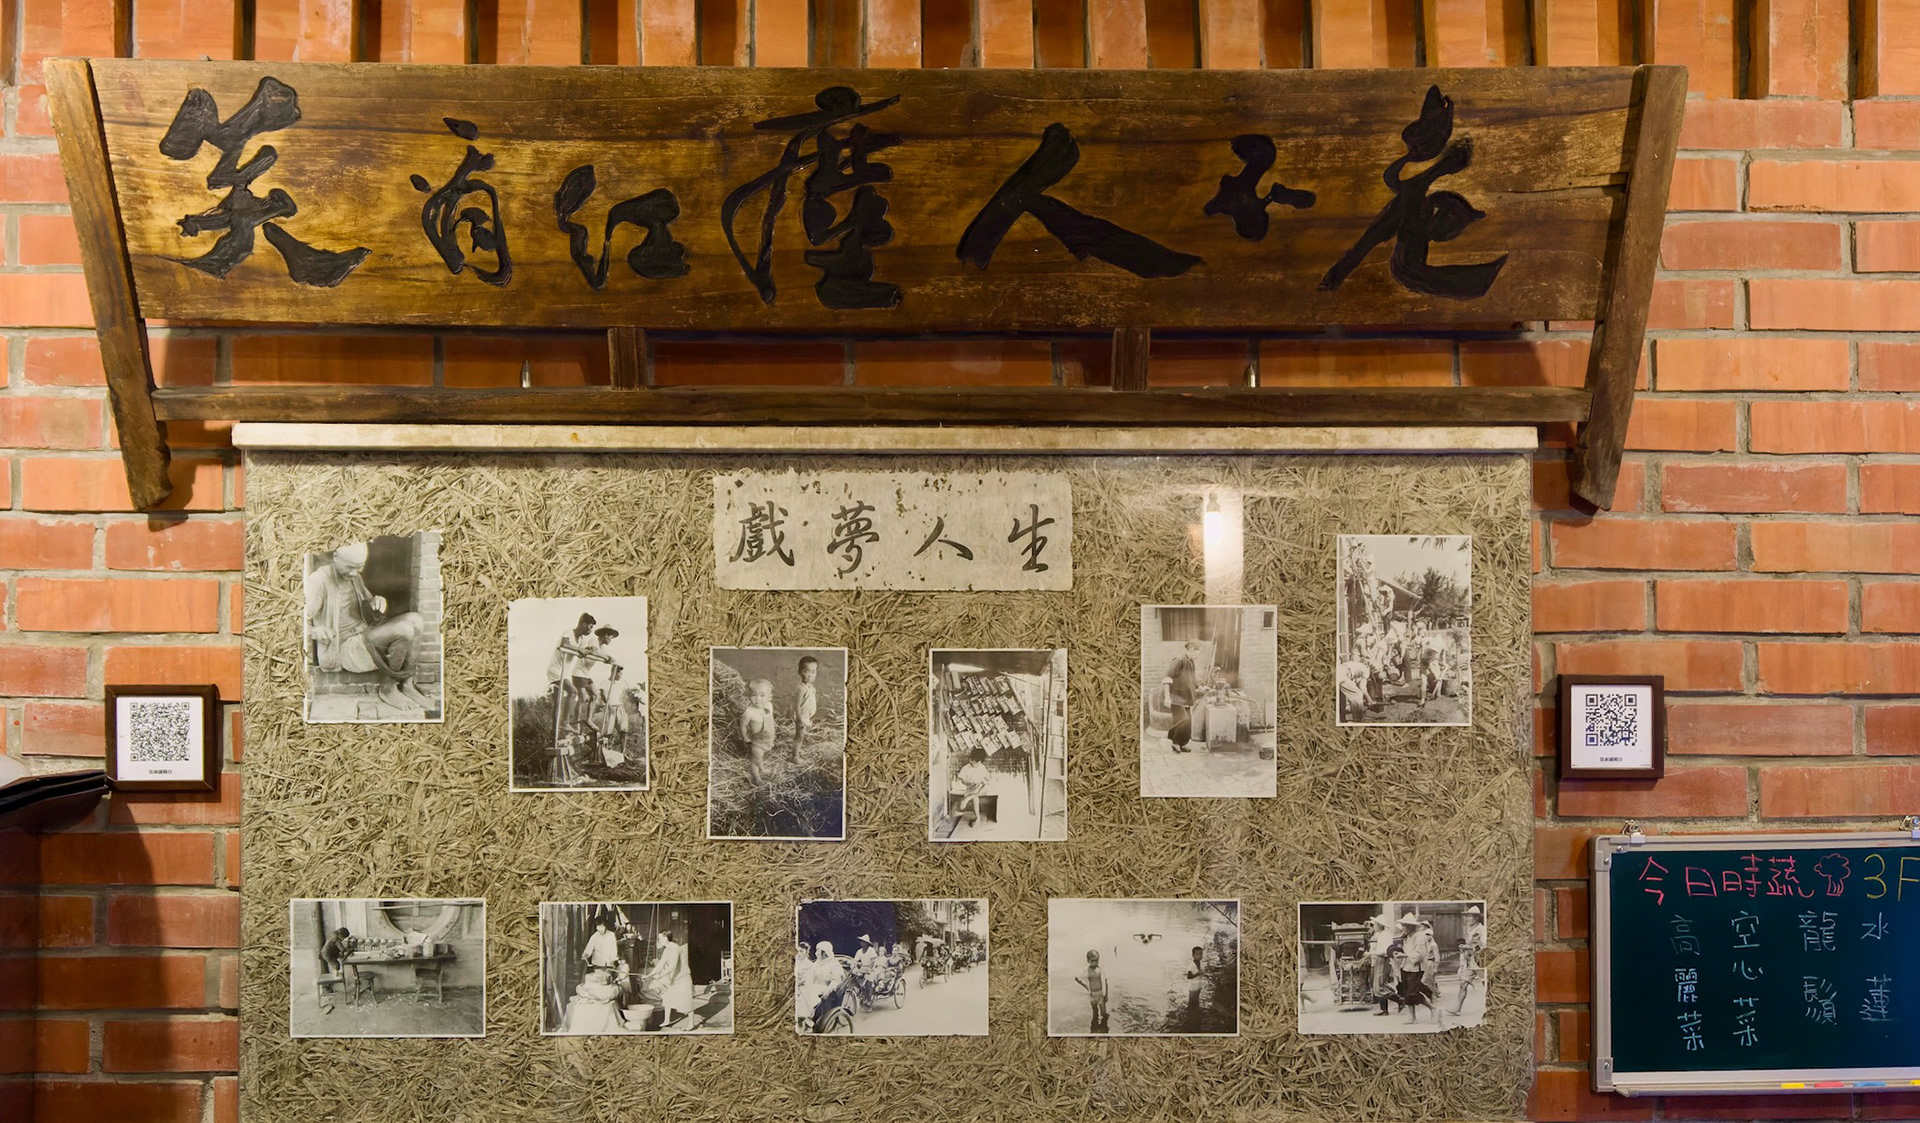 笑看紅塵人不老
戲夢人生
今日時蔬 3F
高麗菜
空心菜
龍鬚
水蓮